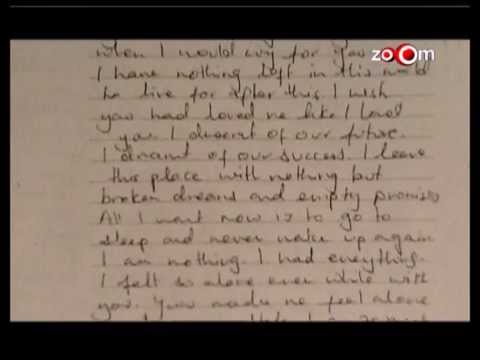 zoom
when I would cry for you
I have nothing left in this world
to live for after this. I wish
you had loved me like I loved
you. I dreamt of our future.
I dreamt of our success. I leave
this place with nothing but
broken dreams and empty promises
All I want now is to go to
sleep and never wake up again
I am nothing. I had everything.
I felt so alone even while with
you. You made me feel alone